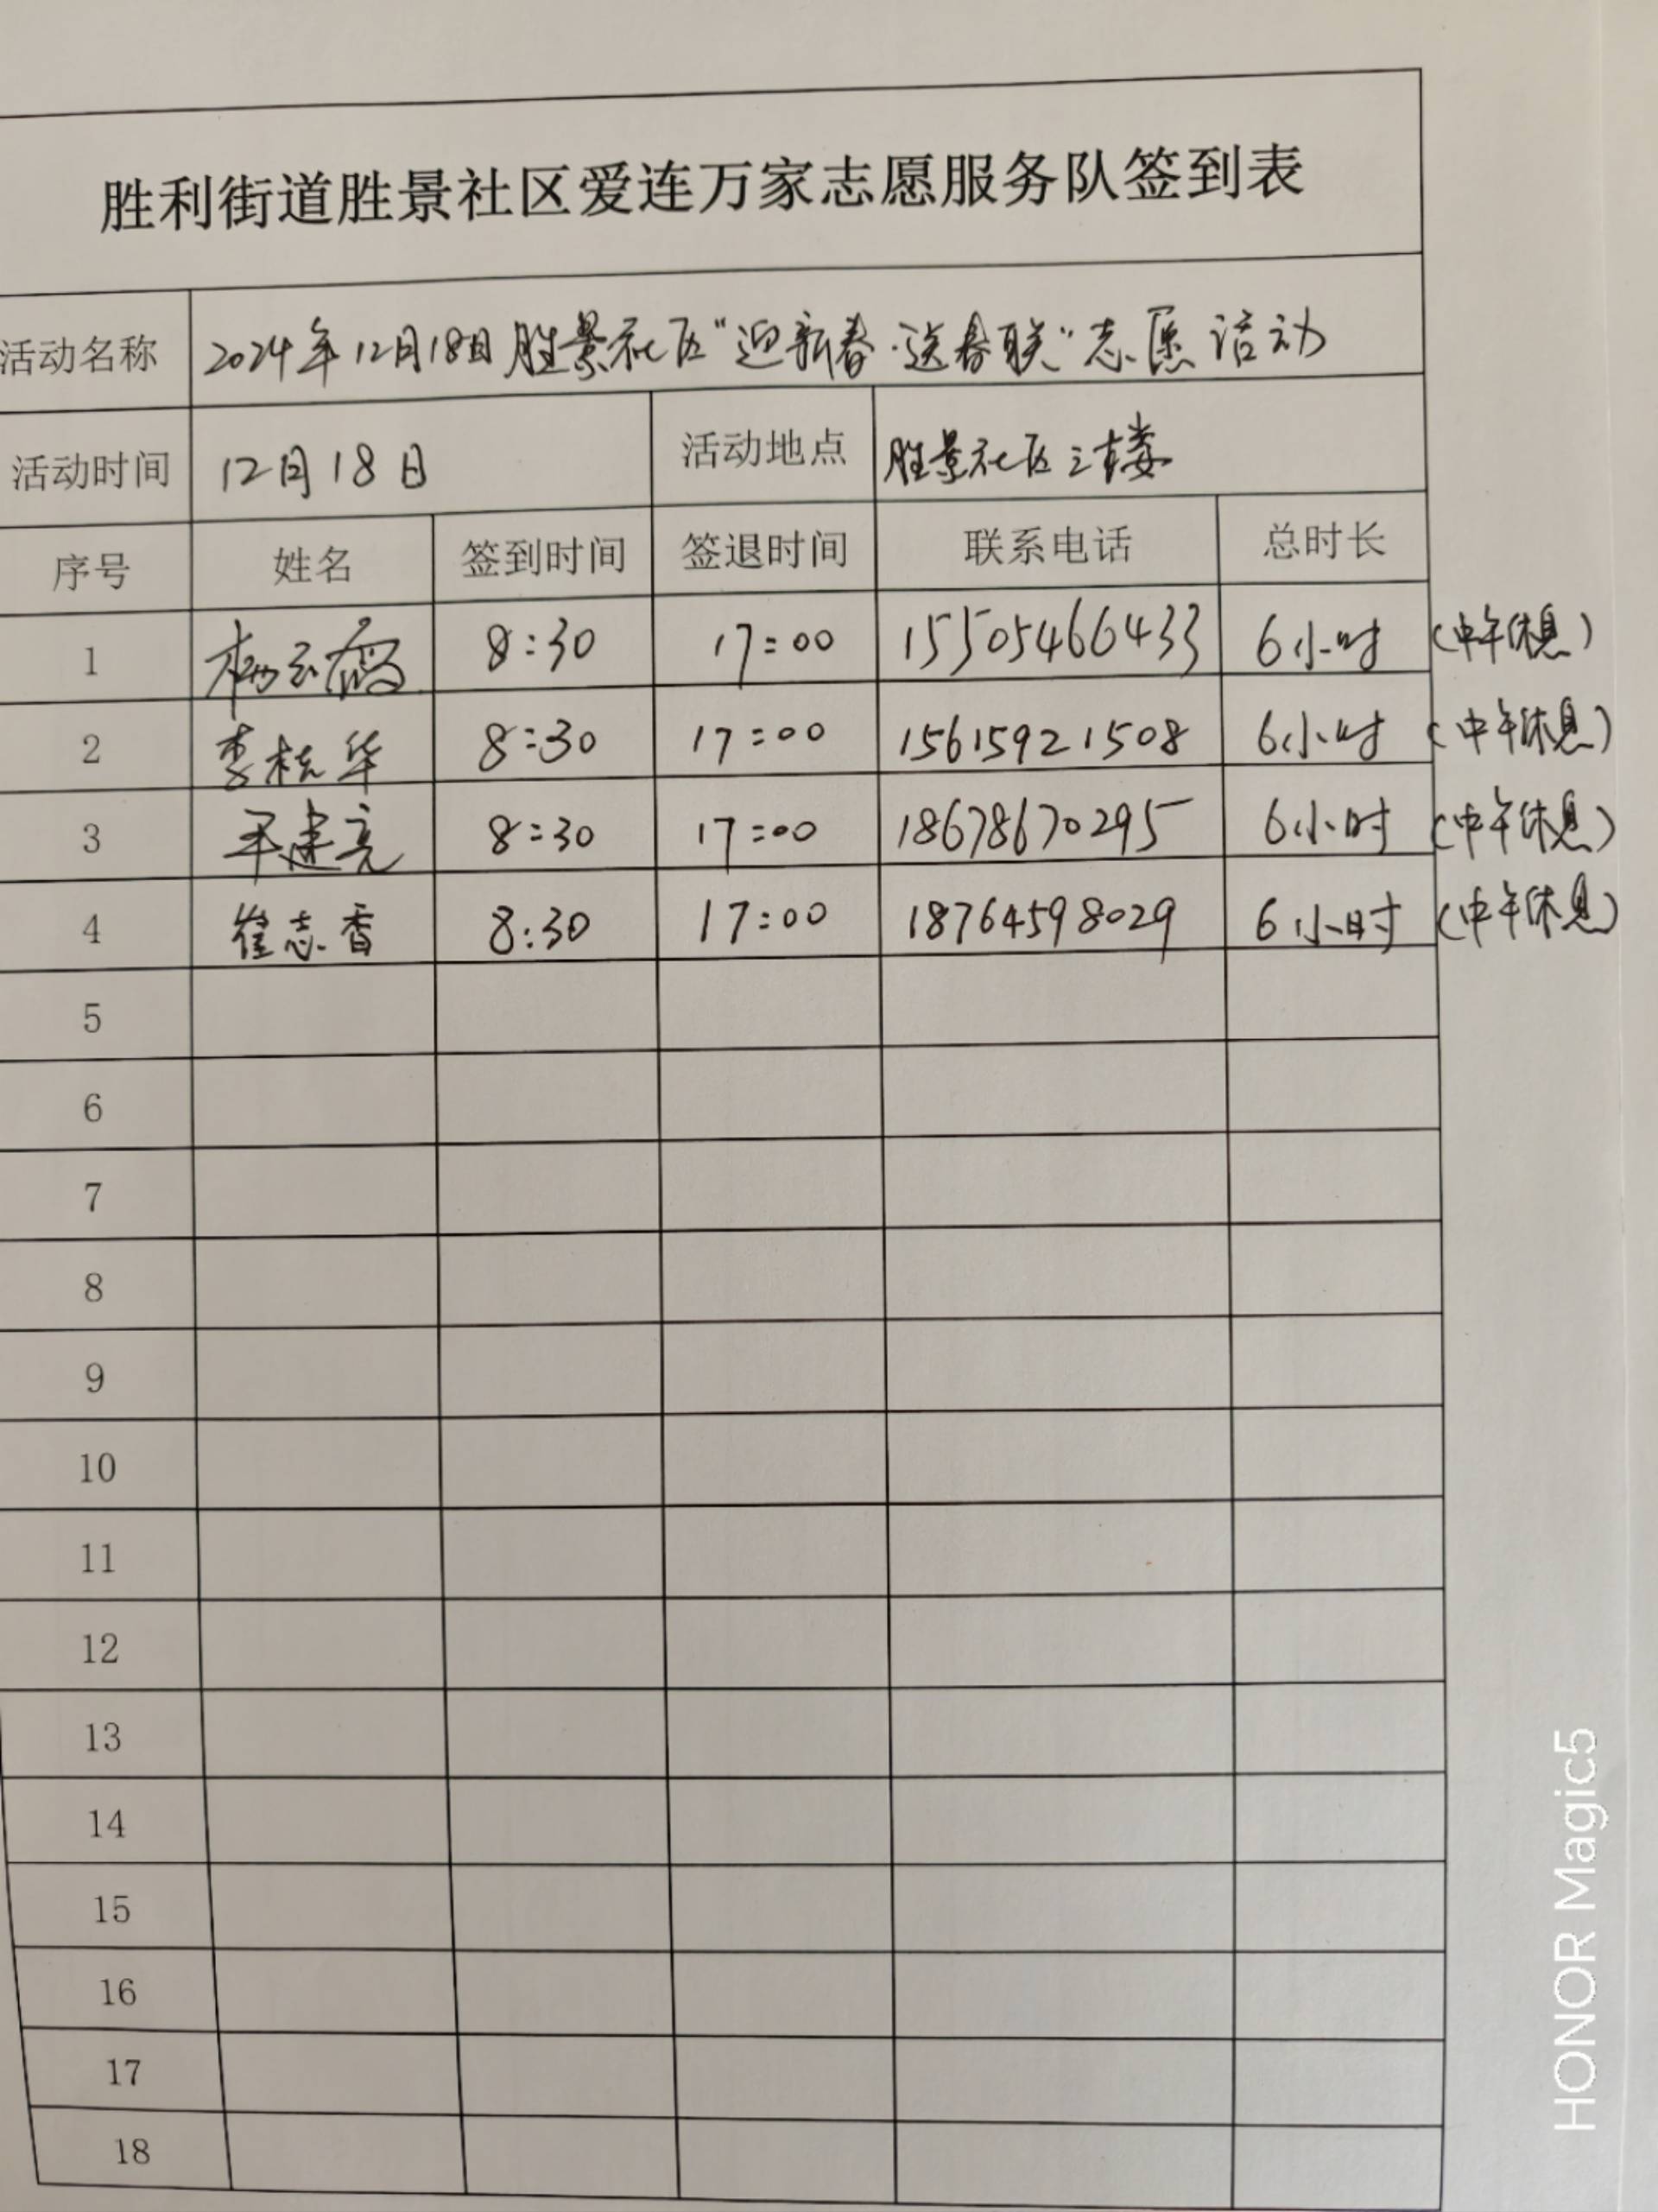 胜利街道胜景社区爱连万家志愿服务队签到表
活动名称 2024年12月18日胜景社区"迎新春·送春联"志愿活动
活动时间 12月18日 活动地点 胜景社区三楼
序号 姓名 签到时间 签退时间 联系电话 总时长
1 杨云霞 8:30 17:00 15505466433 6小时 (中午休息)
2 李桂华 8:30 17:00 15615921508 6小时 (中午休息)
3 建亮 8:30 17:00 18678670295 6小时 (中午休息)
4 崔志香 8:30 17:00 18764598029 6小时 (中午休息)
5
6
7
8
9
10
11
12
13
14
15
16
17
18
HONOR Magic5